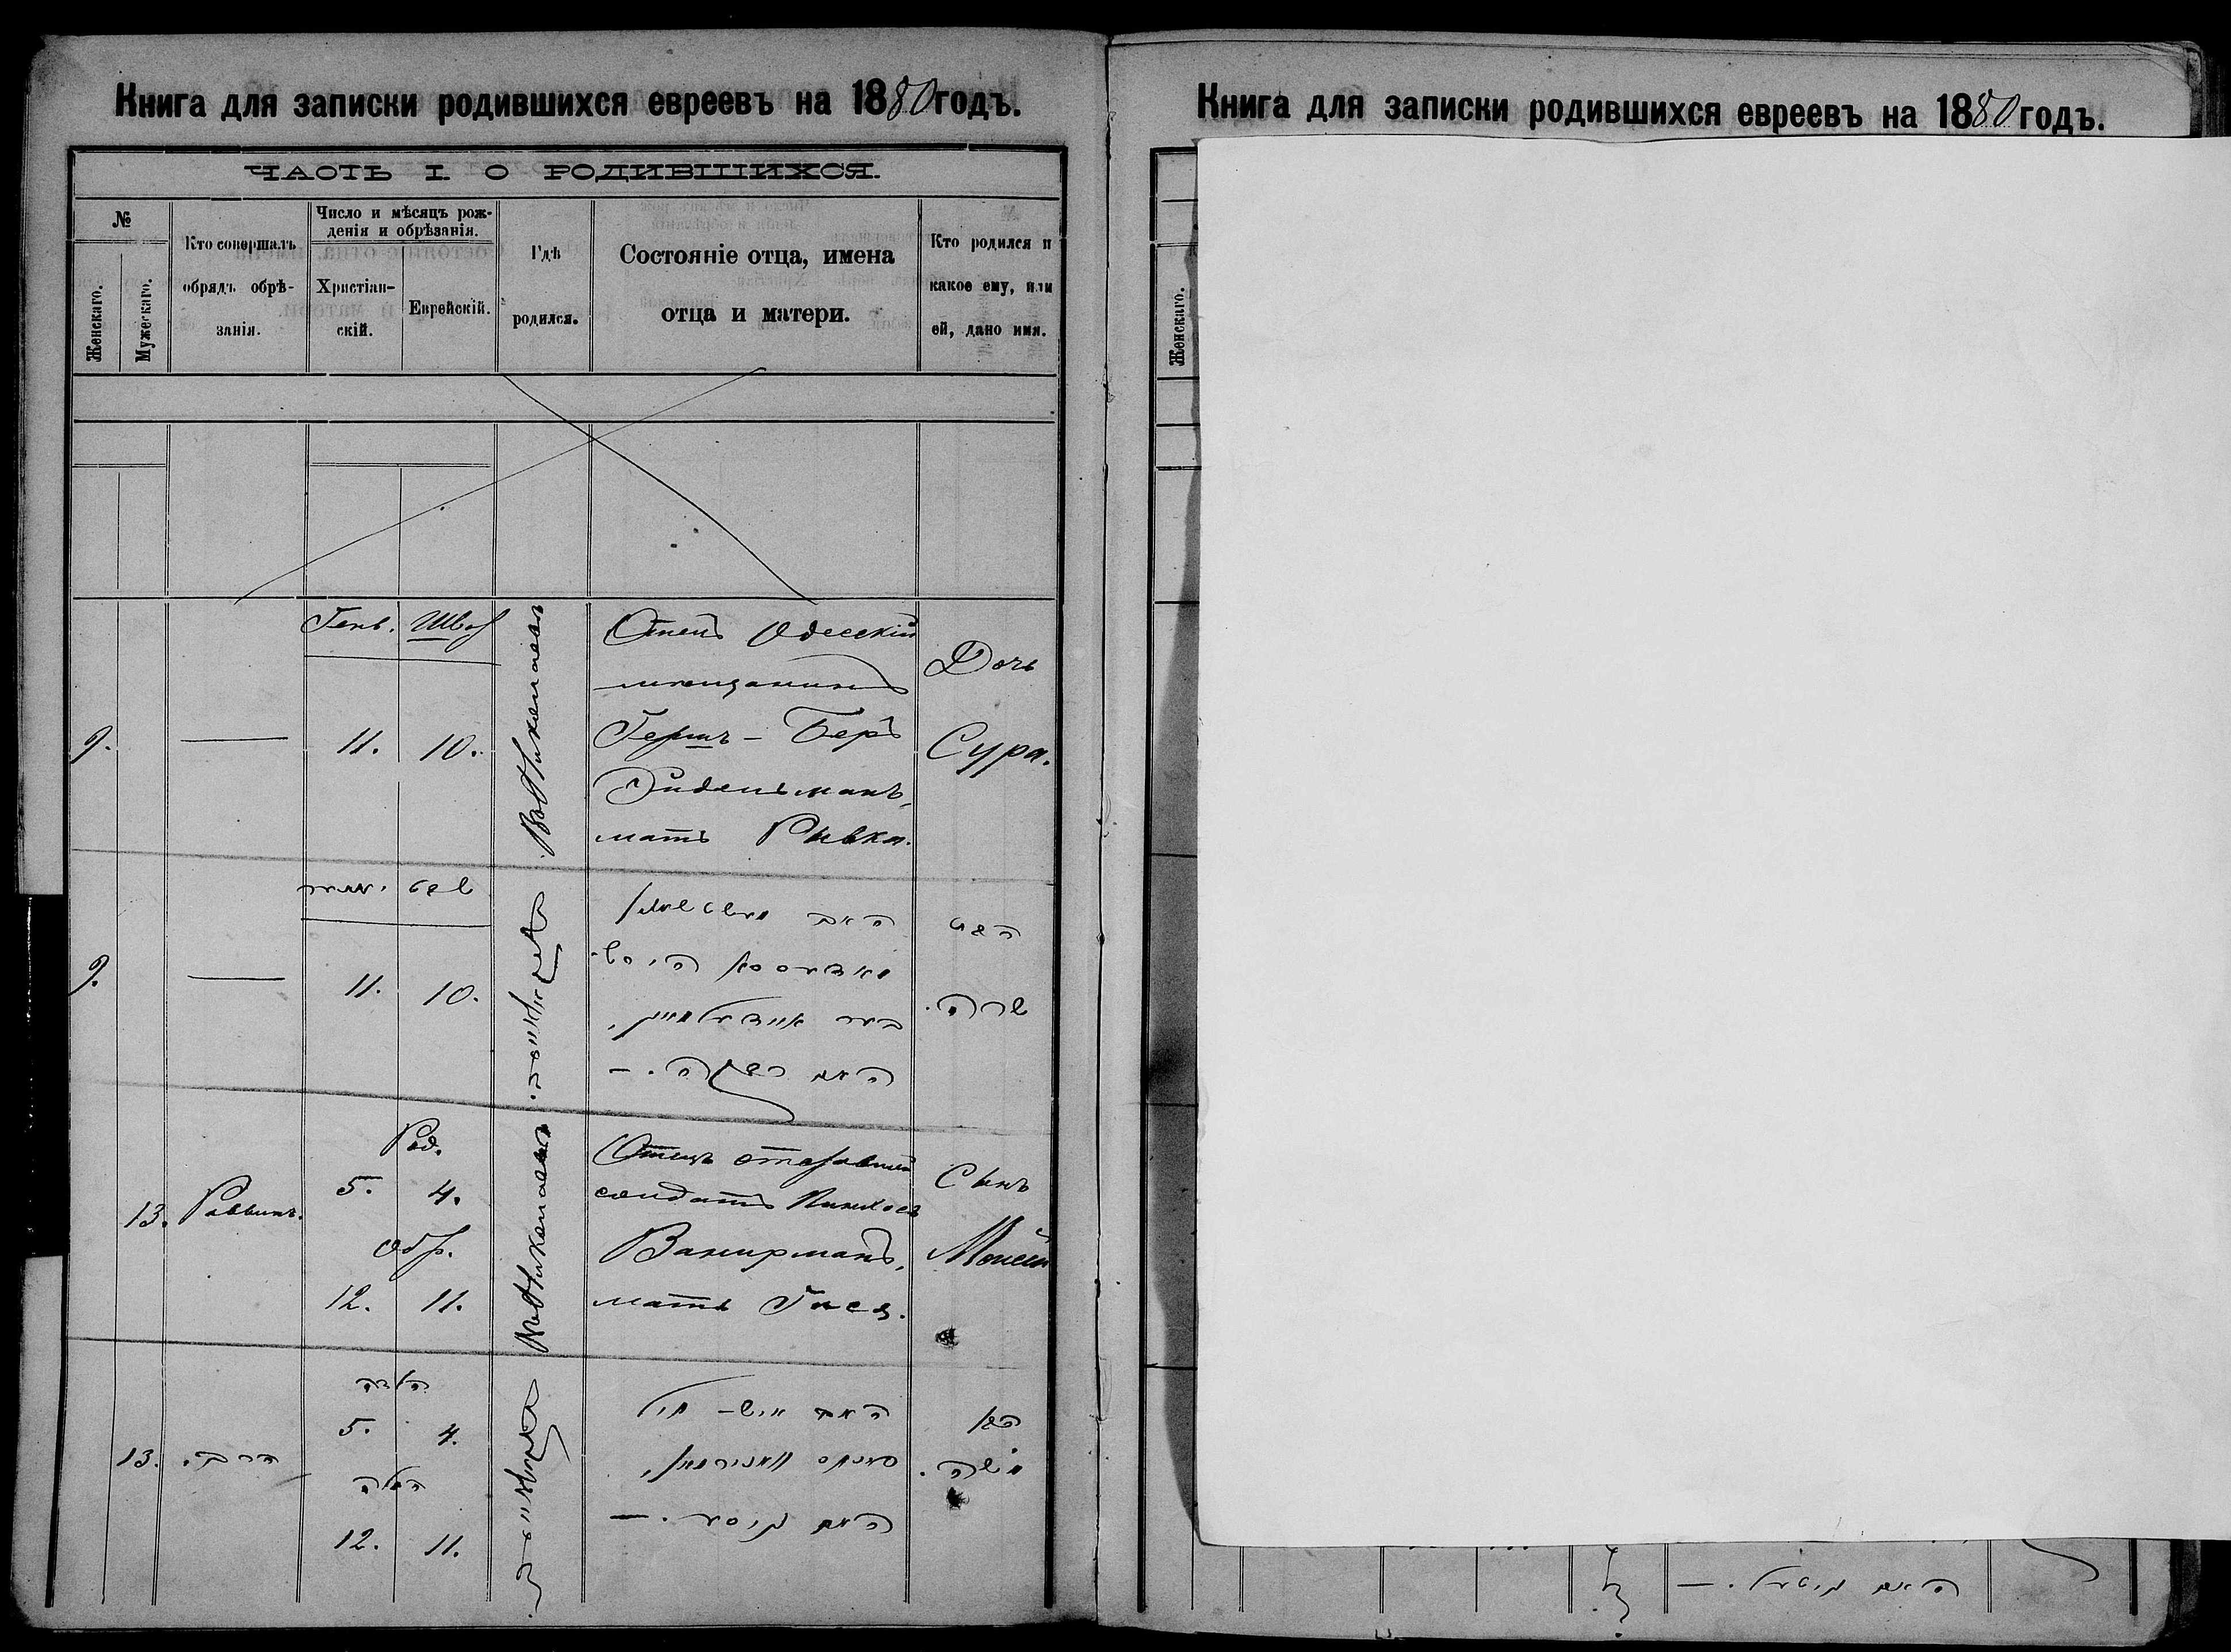 Книга для записки родившихся евреевъ на 1880 годъ.
ЧАСТЬ I. О РОДИВШИХСЯ.
№
Женскаго.
Мужескаго.
Кто совершалъ
обрядъ обрѣ-
занія.
Число и мѣсяцъ рож-
денія и обрѣзанія.
Христіан-
скій.
Еврейскій.
Гдѣ
родился.
Состояніе отца, имена
отца и матери.
Кто родился и
какое ему, или
ей, дано имя.
Генв.
Шват
9.
—
11.
10.
Въ Николаевѣ
Отецъ Одесскій
мѣщанинъ
Гершъ - Беръ
Эйдельманъ,
мать Ривка.
Дочь
Сура.
שבט
9.
—
11.
10.
האב
בער איידעלמאן,
האם רבקה. —
הבת
שרה.
13.
Раввинъ.
Род.
5.
4.
Обр.
12.
11.
Въ Николаевѣ
Отецъ отставной
солдатъ Пинхосъ
мать Гися.
Сынъ
Моисей
13.
הרב.
הולדה
5.
4.
המילה
12.
11.
האב איש - חיל
האם גיסע. —
הבן
משה.
Книга для записки родившихся евреевъ на 1880 годъ.
Женскаго.
האם